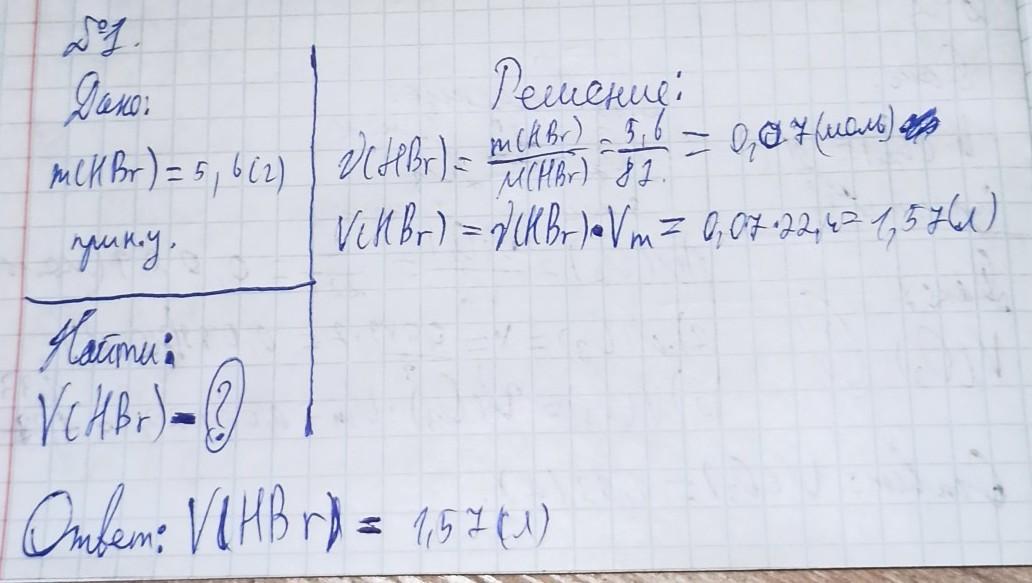 №1.
Дано:
m(HBr) = 5,6(г)
при н.у.
Найти:
V(HBr) - ?
Решение:
ν(HBr) = m(HBr)/M(HBr) = 5,6/81. = 0,07(моль)
V(HBr) = ν(HBr)•Vm = 0,07•22,4= 1,57(л)
Ответ: V(HBr) = 1,57(л)